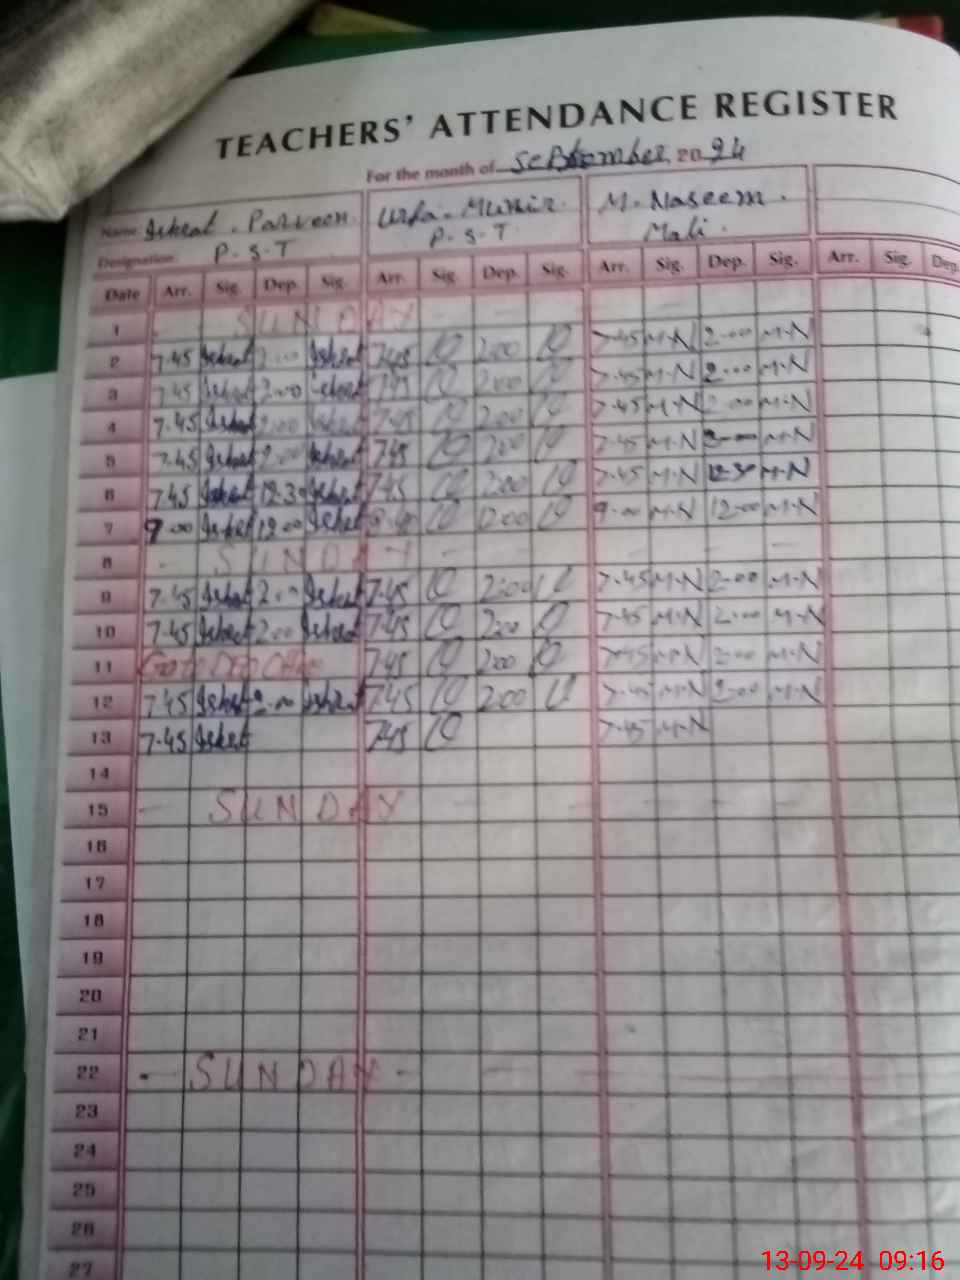 TEACHERS' ATTENDANCE REGISTER
For the month of September 2024
Name Ishrat . Parveen. Urfa . Munir. M. Naseem.
Designation P. S. T P. S. T Mali.
Date Arr. Sig. Dep. Sig. Arr. Sig. Dep. Sig. Arr. Sig. Dep. Sig. Arr. Sig. Dep.
1 - SUNDAY - - - -
2 7.45 Ishrat 2.00 Ishrat 7.45 2.00 7.45 M.N 2.00 M.N
3 7.45 Ishrat 2.00 Ishrat 7.45 2.00 7.45 M.N 2.00 M.N
4 7.45 Ishrat 2.00 Ishrat 7.45 2.00 7.45 M.N 2.00 M.N
5 7.45 Ishrat 2.00 Ishrat 7.45 2.00 7.45 M.N 2.00 M.N
6 7.45 Ishrat 12.30 Ishrat 7.45 2.00 7.45 M.N 12.30 M.N
7 9.00 Ishrat 12.00 Ishrat 12.00 9.00 M.N 12.00 M.N
8 - SUNDAY - - - -
9 7.45 Ishrat 2.00 Ishrat 7.45 2.00 7.45 M.N 2.00 M.N
10 7.45 Ishrat 2.00 Ishrat 7.45 2.00 7.45 M.N 2.00 M.N
11 Go to DEO Office 7.45 2.00 7.45 M.N 2.00 M.N
12 7.45 Ishrat 2.00 Ishrat 7.45 2.00 7.45 M.N 2.00 M.N
13 7.45 Ishrat 7.45 7.45 M.N
14
15 - SUNDAY - - - -
16
17
18
19
20
21
22 - SUNDAY -
23
24
25
26
27
13-09-24 09:16